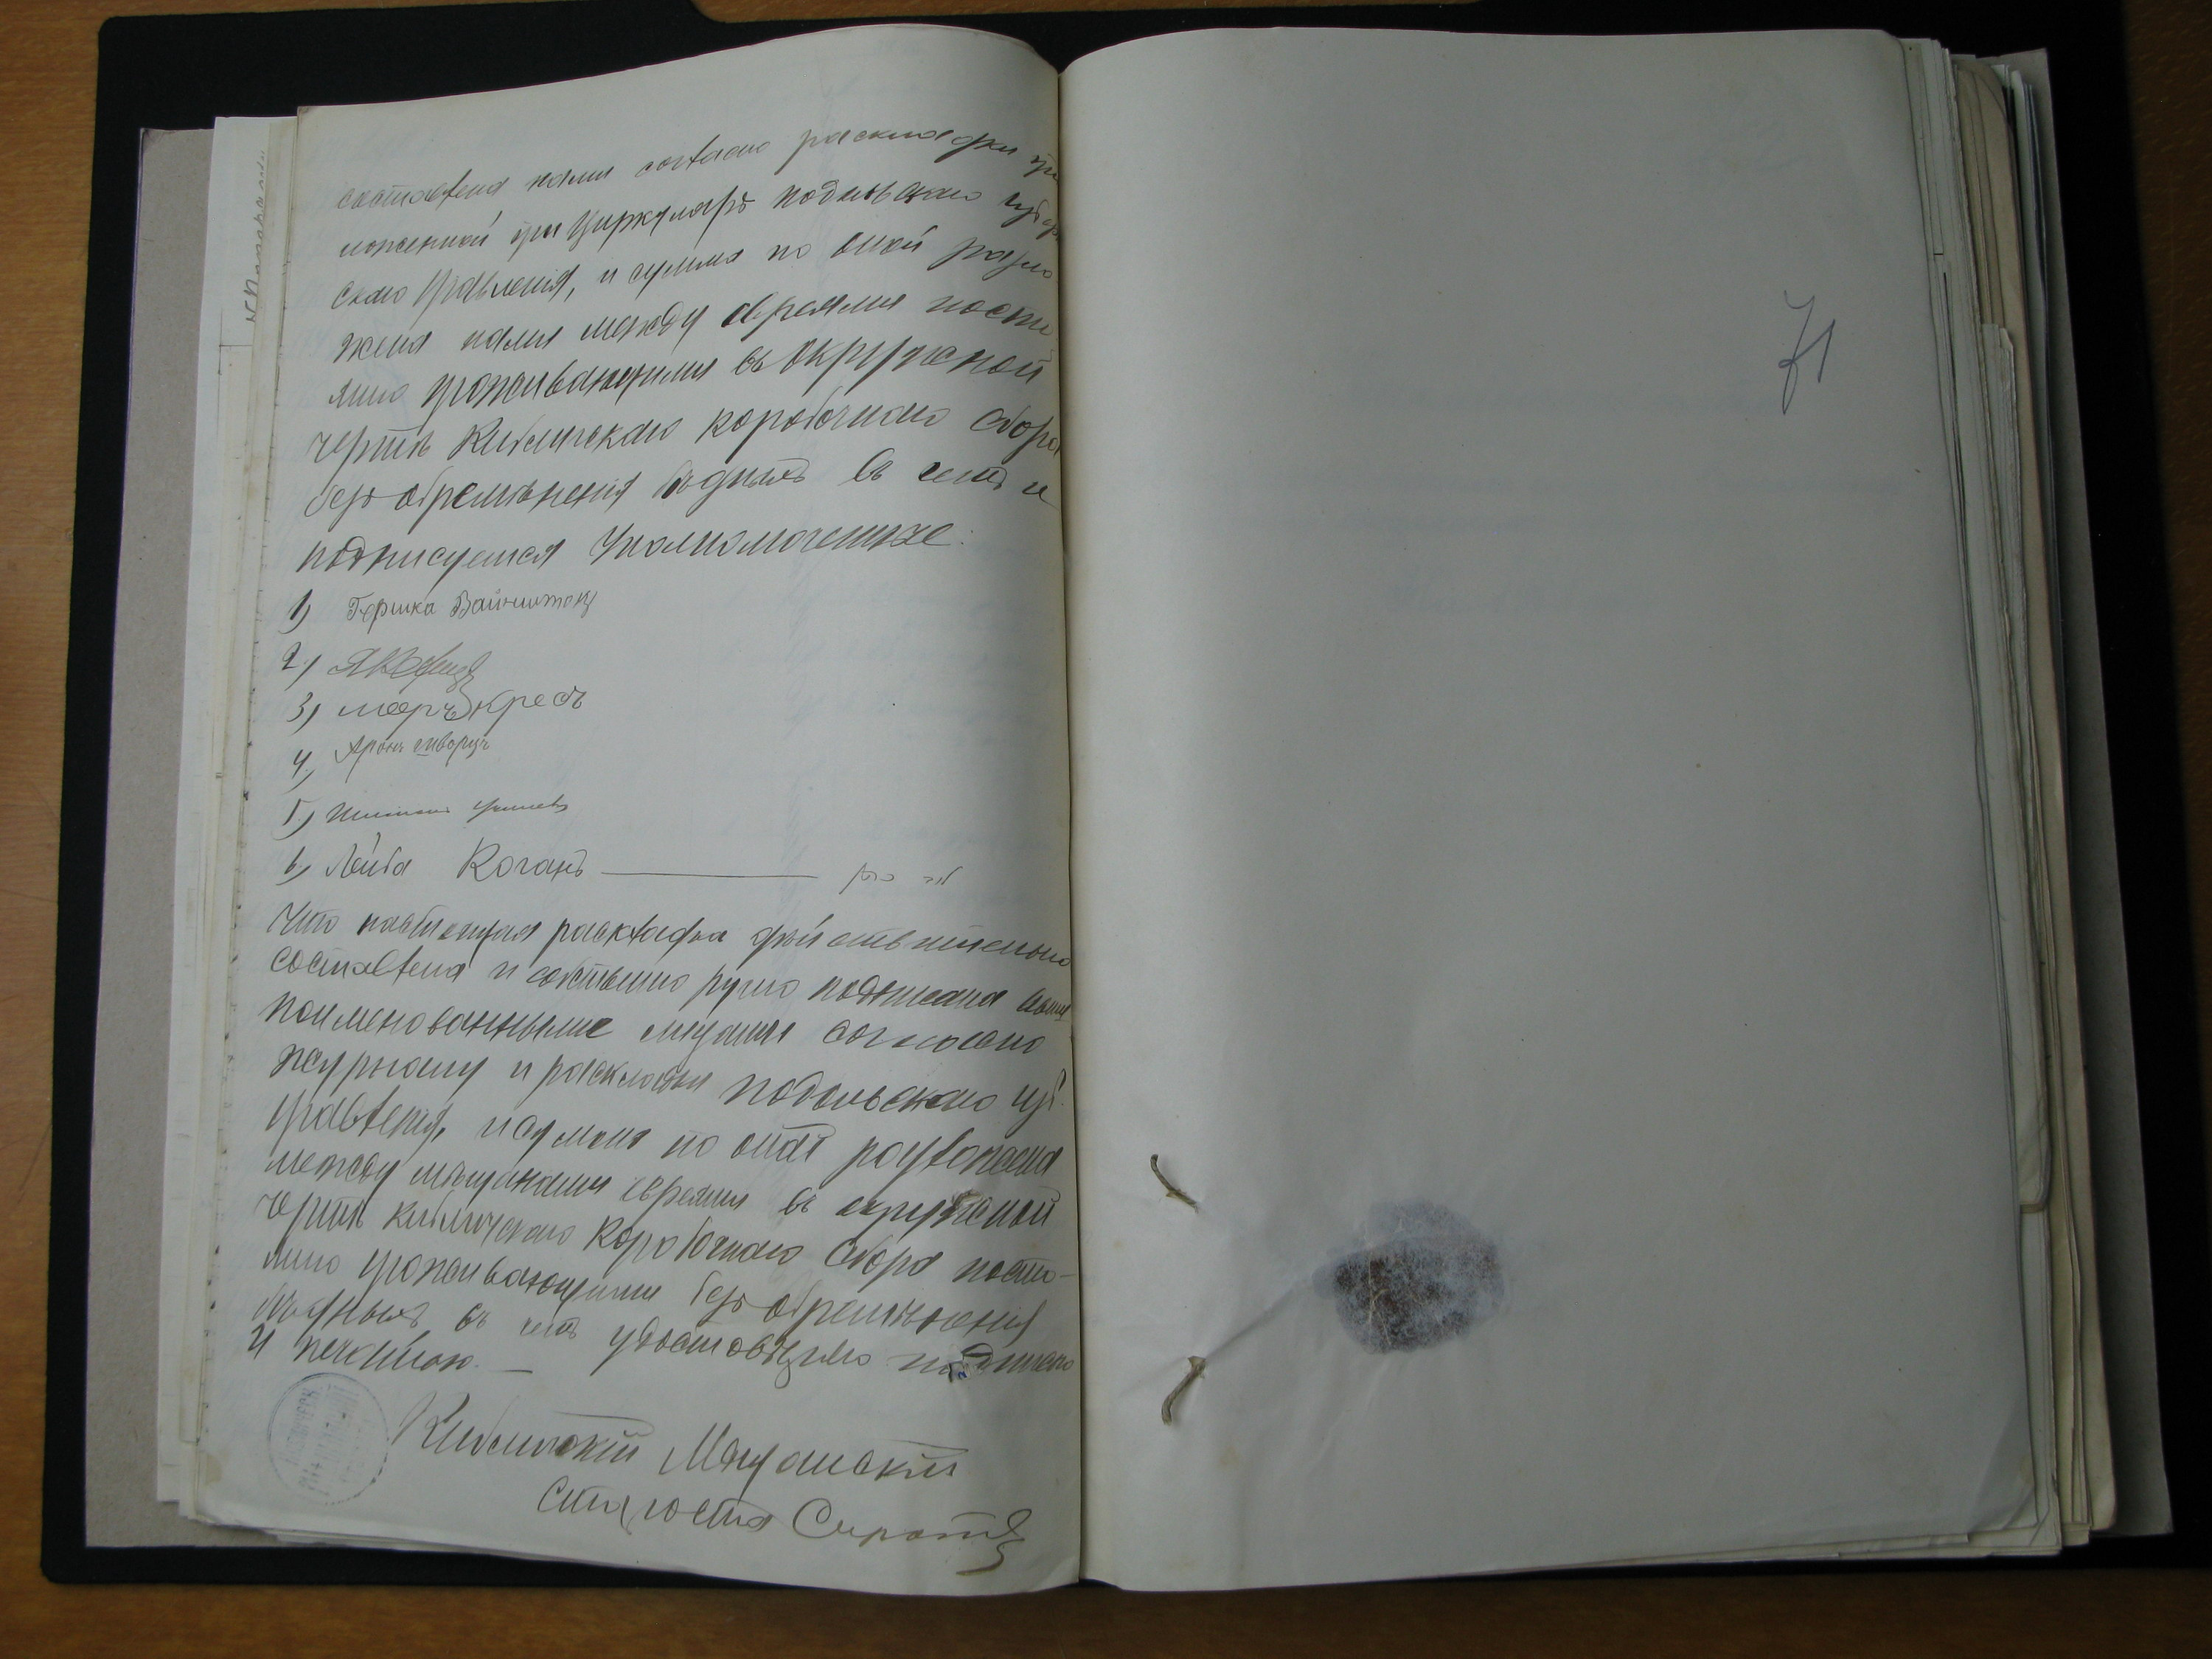 составлена нами согласно раскладки при
ложенной при Циркуляръ подольскаго губерн
скаго Правленія, и сумма по оной разло
жена нами между евреями посто
янно проживающими въ окружной
чертѣ Кибличскаго коробочнаго сбора
безъ обремѣненія бѣдныхъ въ чемъ и
подписуемся Уполномоченные:
1) Гершка Вайнштокъ
2)
3) Мееръ Кресъ
4) Аронъ шворцъ
5)
6) Лейба Коганъ
Что настоящая раскладка дѣйствительно
составлена и собственно ручно подписана выше
поименованными лицами согласно
журналу и раскладки подольскаго губ.
Правленія, и сумма по оной разложена
между мѣщанами евреями въ окружной
чертѣ Кибличскаго Коробочнаго сбора посто-
янно проживающими безъ обремѣненія
бѣдныхъ въ чемъ удостовѣряю подписью
и печатью. —
Кибличскій Мѣщанскій
Староста Сирота
71